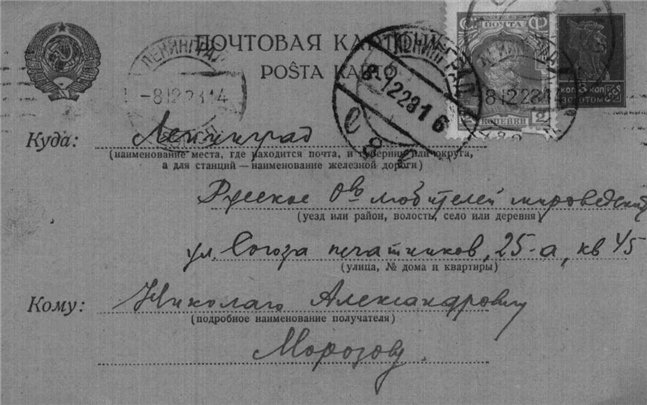 ПОЧТОВАЯ КАРТ
POŜTA KARTO
ЛЕНИНГРАД
-8.12.28.14
ЛЕНИНГРАД
8-12 28 16
ПОЧТА
8.12.28.14
ЗОЛОТОМ
Куда: Ленинград
(наименование места, где находится почта, и губернии или округа,
а для станций—наименование железной дороги)
Русское О-во любителей мироведения
(уезд или район, волость, село или деревня)
ул. Союза печатников, 25-а, кв 45
(улица, № дома и квартиры)
Кому: Николаю Александровичу
(подробное наименование получателя)
Морозову.